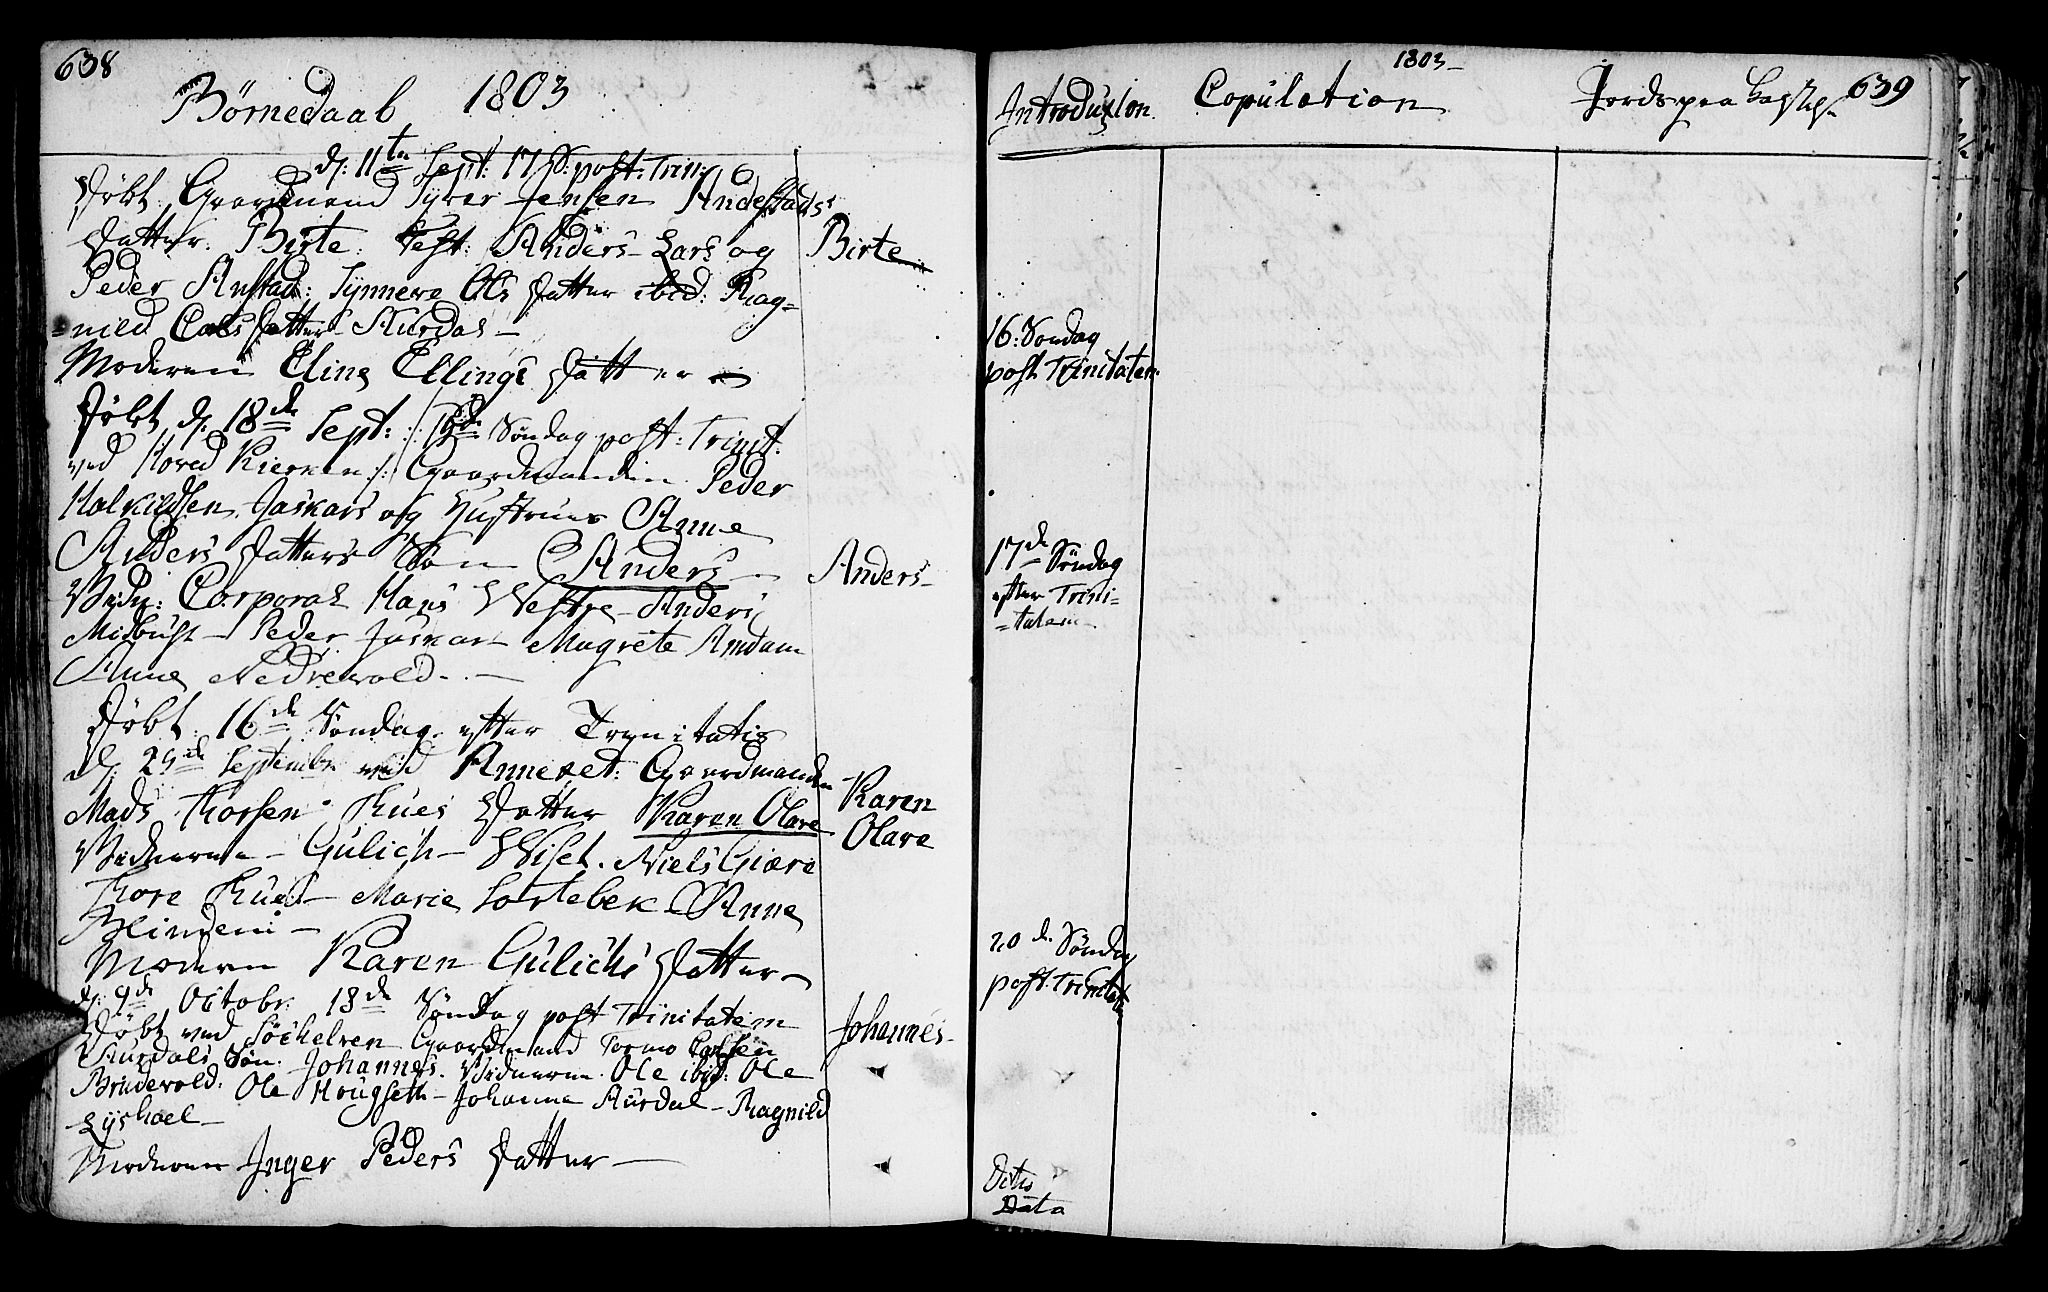 638
Børnedaab 1803
d: 11te Sept: 17 S: post: Trin:
Døbt Gaardmand Syver Jensen Andestads
Datter: Birte: Test: Anders - Lars og
Peder Anstad: Synneve Ols Datter ibid: Rag-
=nild Datter Aurdal -
Moderen Eline Ellings Datter
Døbt d: 18de Sept: Søndag post: Trinit:
ved Hoved Kirken :/: Gaardmanden Peder
Halkildsen Jaskars og Hustrues Anne
Anders Datters Søn Anders -
Vidn: Corporal Hans Westre - Anders
Midbust - Peder Jaskar - Magrete Amdam
Anne Nedrevold. -
Døbt 16de Søndag efter Trinitatis
d: 25de Septembr ved Annexet: Gaardmanden
Mads Thorsen Rues Datter Karen Olave
Vidnerne - Gulich - Wiset. Niels Giære
Thore Rues - Marie Sortebek - Anne
Blindem -
Moderen Karen Gulichs Datter -
d: 9de Octobr: 18de Søndag post Trinitatem
Døbt ved Søchelven Gaardmand Tormo
Aurdals Søn: Johannes. Vidnerne. Ole ibid: Ole
Brudevold. Ole Hougseth - Johanna Aurdal - Ragnild
Lyshoel -
Moderen Inger Peders Datter -
Birte
Anders -
Karen
Olave
Johannes -
1803 -
639
Introduxion. Copulation Jords paa Kastelse
16: Søndag
post Trinitatem
17de Søndag
efter Trini-
=tatem -
20de Søndag
post Trinitat:
Dito
Dato